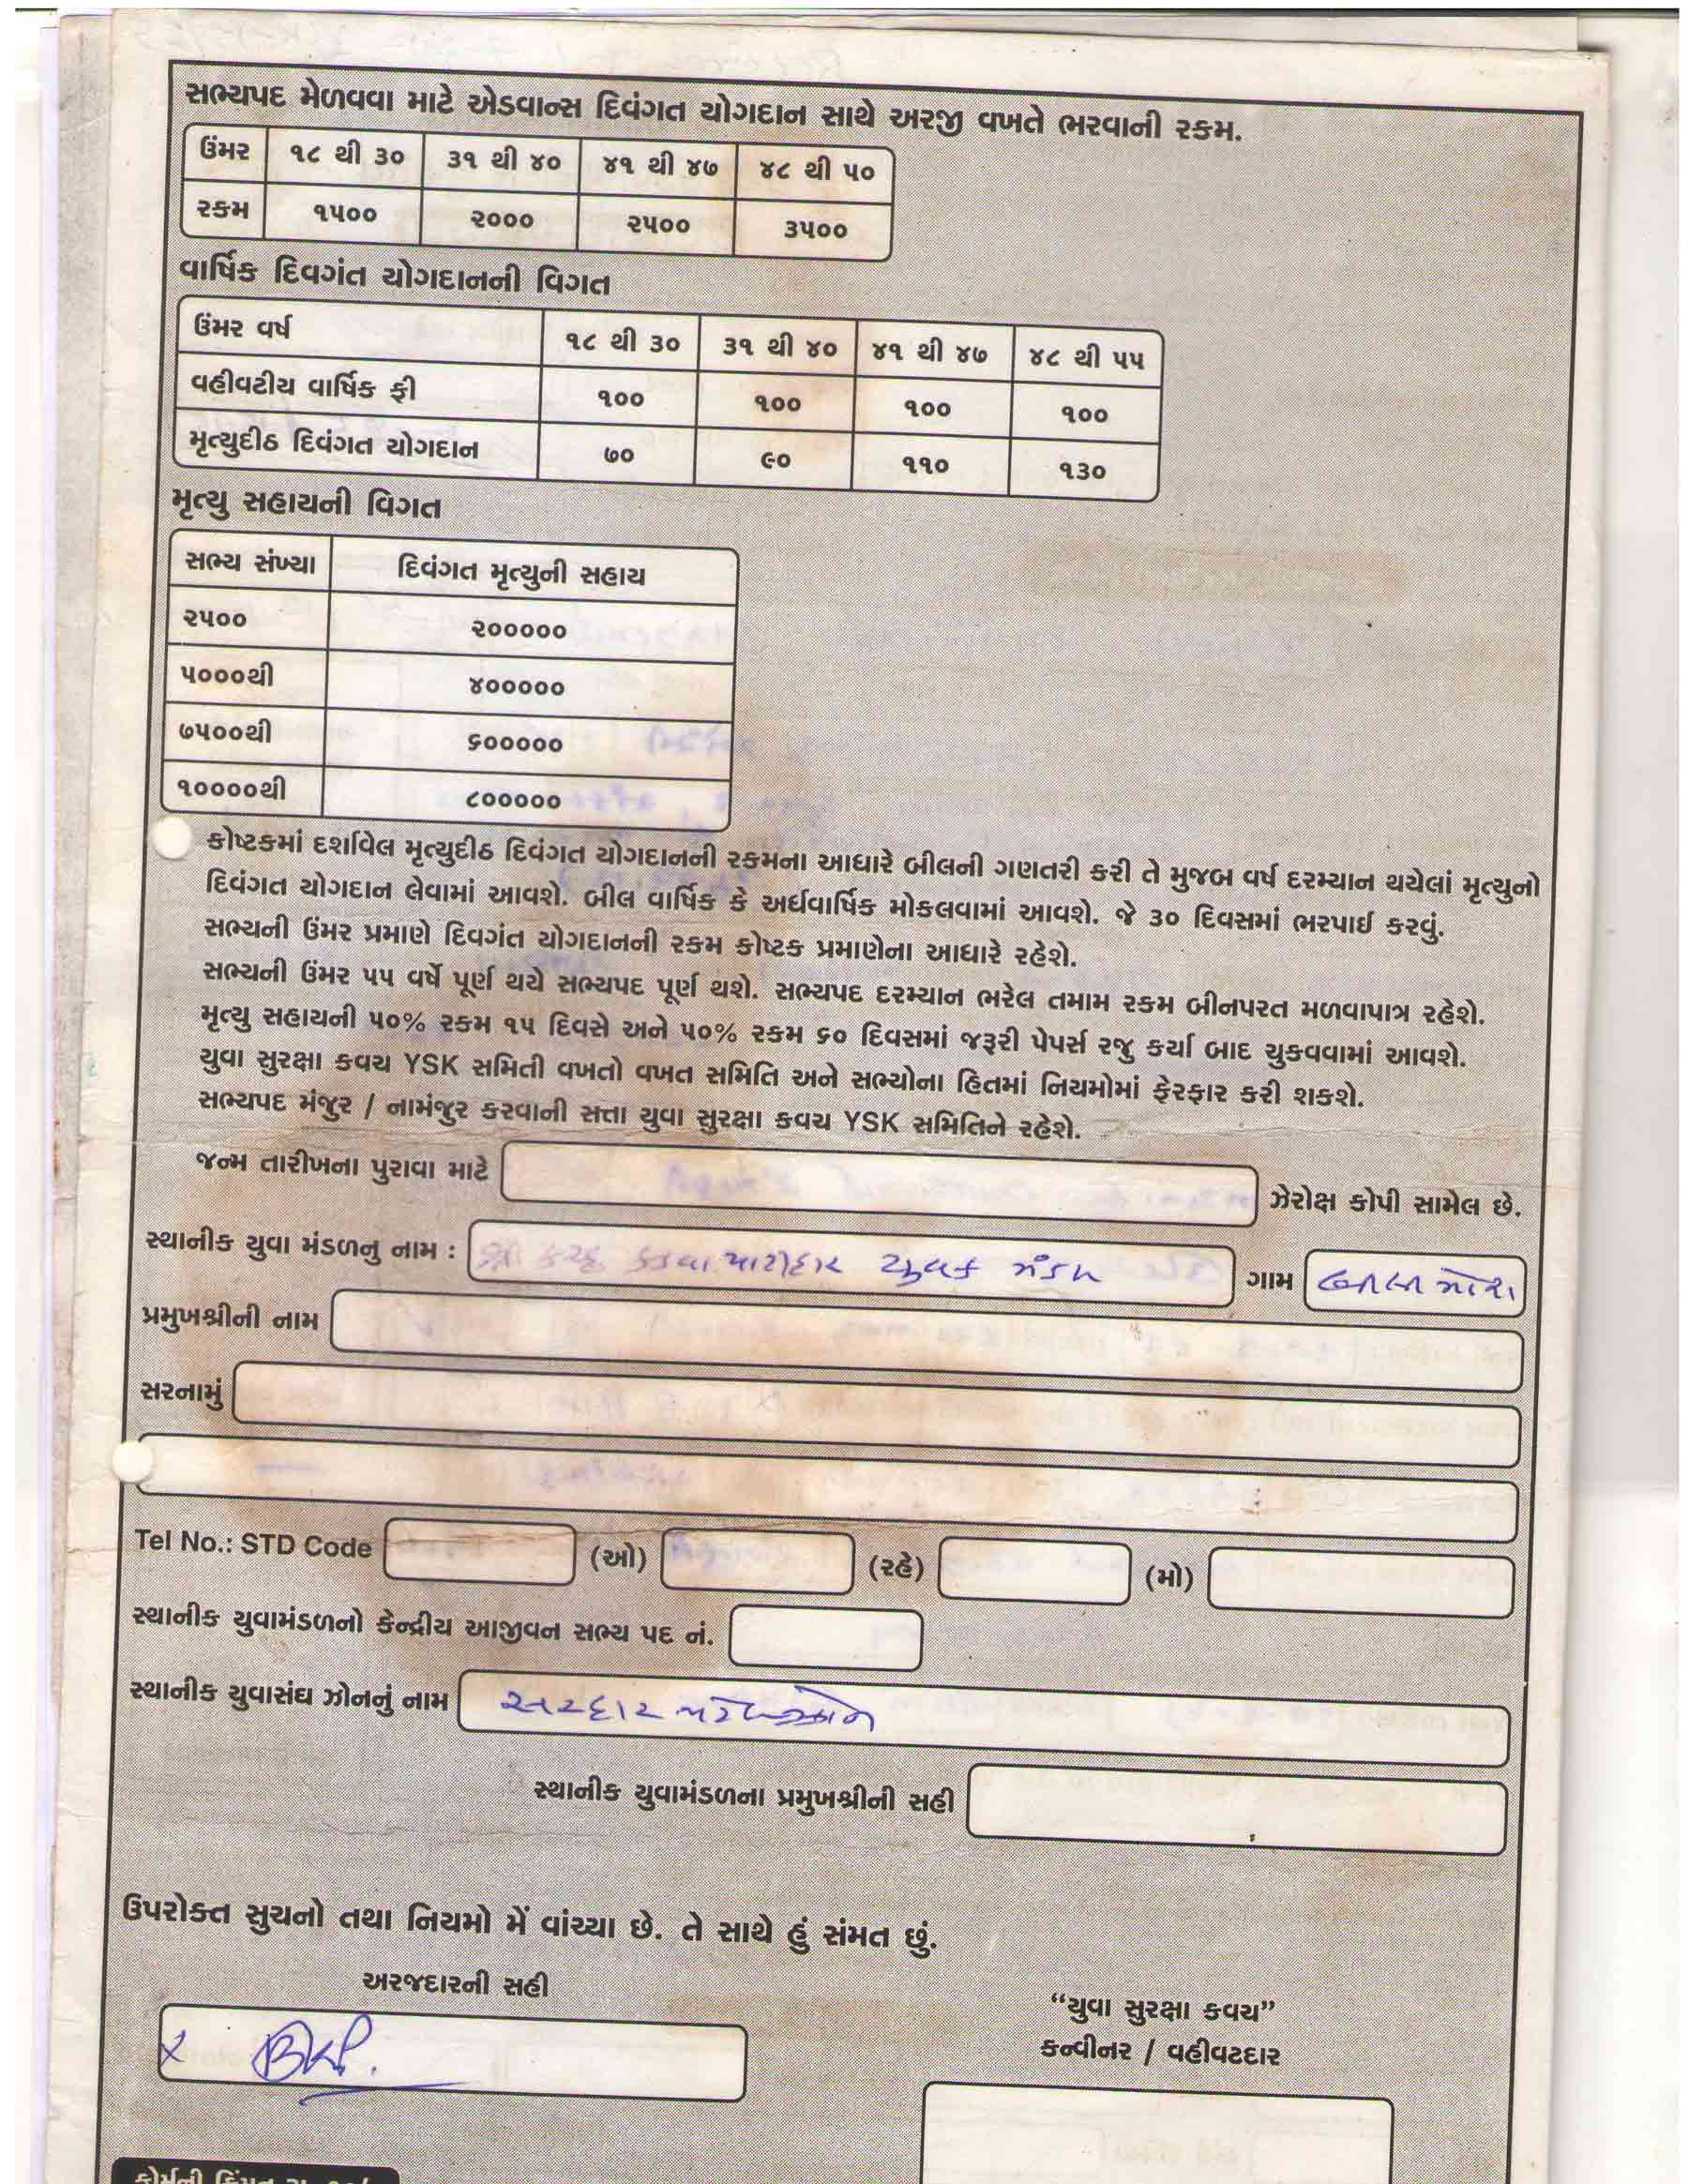 સભ્યપદ મેળવવા માટે એડવાન્સ દિવંગત યોગદાન સાથે અરજી વખતે ભરવાની રકમ.
ઉંમર ૧૮ થી ૩૦ ૩૧ થી ૪૦ ૪૧ થી ૪૭ ૪૮ થી ૫૦
રકમ ૧૫૦૦ ૨૦૦૦ ૨૫૦૦ ૩૫૦૦
વાર્ષિક દિવગંત યોગદાનની વિગત
ઉંમર વર્ષ ૧૮ થી ૩૦ ૩૧ થી ૪૦ ૪૧ થી ૪૭ ૪૮ થી ૫૫
વહીવટીય વાર્ષિક ફી ૧૦૦ ૧૦૦ ૧૦૦ ૧૦૦
મૃત્યુદીઠ દિવંગત યોગદાન ૭૦ ૯૦ ૧૧૦ ૧૩૦
મૃત્યુ સહાયની વિગત
સભ્ય સંખ્યા દિવંગત મૃત્યુની સહાય
૨૫૦૦ ૨૦૦૦૦૦
૫૦૦૦થી ૪૦૦૦૦૦
૭૫૦૦થી ૬૦૦૦૦૦
૧૦૦૦૦થી ૮૦૦૦૦૦
કોષ્ટકમાં દર્શાવેલ મૃત્યુદીઠ દિવંગત યોગદાનની રકમના આધારે બીલની ગણતરી કરી તે મુજબ વર્ષ દરમ્યાન થયેલાં મૃત્યુનો
દિવંગત યોગદાન લેવામાં આવશે. બીલ વાર્ષિક કે અર્ધવાર્ષિક મોકલવામાં આવશે. જે ૩૦ દિવસમાં ભરપાઈ કરવું.
સભ્યની ઉંમર પ્રમાણે દિવગંત યોગદાનની રકમ કોષ્ટક પ્રમાણેના આધારે રહેશે.
સભ્યની ઉંમર ૫૫ વર્ષે પૂર્ણ થયે સભ્યપદ પૂર્ણ થશે. સભ્યપદ દરમ્યાન ભરેલ તમામ રકમ બીનપરત મળવાપાત્ર રહેશે.
મૃત્યુ સહાયની ૫૦% રકમ ૧૫ દિવસે અને ૫૦% રકમ ૬૦ દિવસમાં જરૂરી પેપર્સ રજુ કર્યા બાદ ચુકવવામાં આવશે.
યુવા સુરક્ષા કવચ YSK સમિતી વખતો વખત સમિતિ અને સભ્યોના હિતમાં નિયમોમાં ફેરફાર કરી શકશે.
સભ્યપદ મંજુર / નામંજુર કરવાની સત્તા યુવા સુરક્ષા કવચ YSK સમિતિને રહેશે.
જન્મ તારીખના પુરાવા માટે ઝેરોક્ષ કોપી સામેલ છે.
સ્થાનીક યુવા મંડળનુ નામ : શ્રી કચ્છ કડવા પાટીદાર યુવક મંડળ ગામ
પ્રમુખશ્રીની નામ
સરનામું
Tel No.: STD Code (ઓ) (રહે) (મો)
સ્થાનીક યુવામંડળનો કેન્દ્રીય આજીવન સભ્ય પદ નં.
સ્થાનીક યુવાસંઘ ઝોનનું નામ સરદાર પટેલ ઝોન
સ્થાનીક યુવામંડળના પ્રમુખશ્રીની સહી
ઉપરોક્ત સુચનો તથા નિયમો મેં વાંચ્યા છે. તે સાથે હું સંમત છું.
અરજદારની સહી
“યુવા સુરક્ષા કવચ”
કન્વીનર / વહીવટદાર
x BKP.